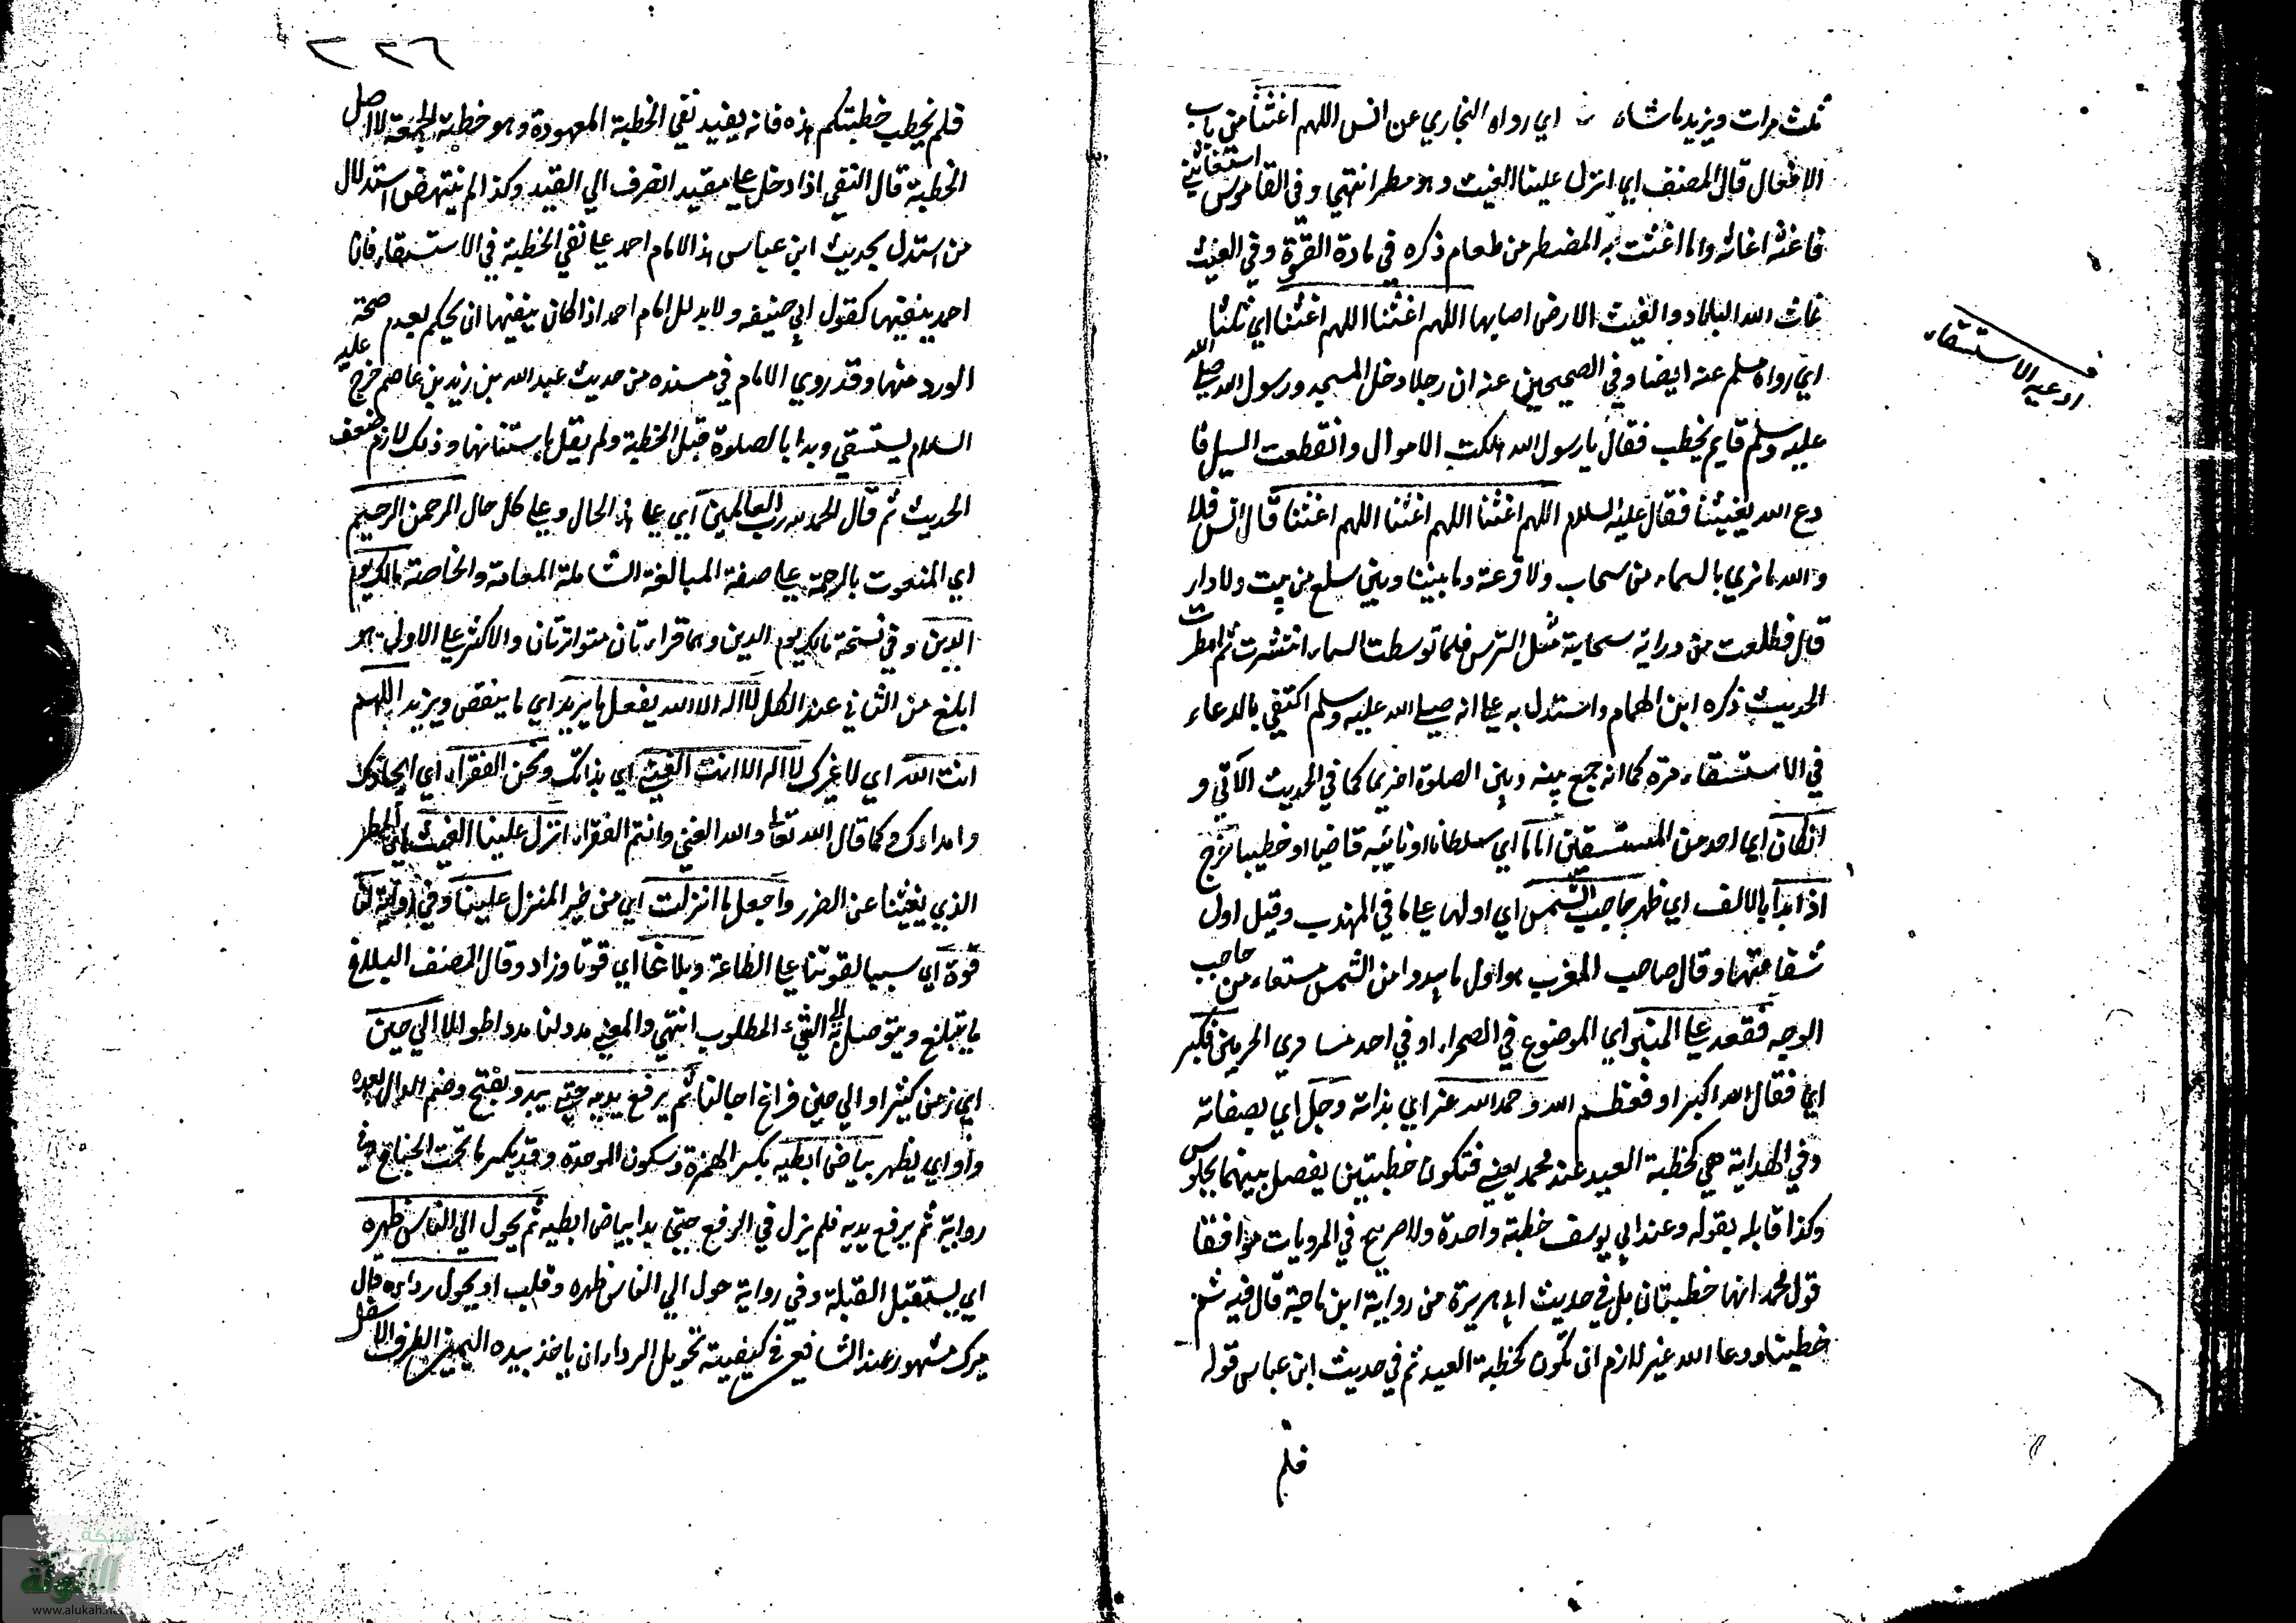 ثلث مرات ويزيد ما شاء خ اي رواه البخاري عن انس اللهم اغثنا من باب
الافعال قال المصنف اي انزل علينا الغيث وهو مطر انتهي وفي القاموس استغاثني
فاغثته اغاثة وما اغثت به المضطر من طعام ذكره في مادة القرة وفي الغيث
غاث الله البلاد والغيث الارض اصابها اللهم اغثنا اللهم اغثنا اي ثلثا
اي رواه مسلم عنه ايضا وفي الصحيحين عنه ان رجلا دخل المسجد ورسول الله صلي الله
عليه وسلم قايم يخطب فقال يا رسول الله هلكت الاموال وانقطعت السبل فا
دع الله يغيثنا فقال عليه السلام اللهم اغثنا اللهم اغثنا اللهم اغثنا قال انس فلا
والله ما نري بالسماء من سحاب ولا قزعة وما بيننا وبين سلع من بيت ولا دار
قال فطلعت من ورائه سحابة مثل الترس فلما توسطت السماء انتشرت ثم امطرت
الحديث ذكره ابن الهمام واستدل به علي انه صلي الله عليه وسلم اكتفي بالدعاء
في الاستسقاء مرة كما انه جمع بينه وبين الصلوة اخري كما في الحديث الآتي و
ان كان اي احد من المستسقين اماما اي سلطانا او نائبه قاضيا او خطيبا خرج
اذا بدا بالالف اي ظهر حاجب الشمس اي اولها علي ما في المهذب وقيل اول
شعاعتها وقال صاحب المغرب هو اول ما يبدو من الشمس مستعار من حاجب
الوجه فقعد علي المنبر اي الموضوع في الصحراء او في احد مسا دري الحرمين فكبر
اي فقال الله اكبر او فعظم الله وحمد الله عز اي بذاته وجل اي بصفاته
وفي الهداية هي كخطبة العيد عند محمد يعني فتكون خطبتين يفصل بينهما بجلوس
وكذا قابله بقوله وعند ابي يوسف خطبة واحدة ولا صريح في المرويات موافقا
قول محمد انها خطبتان بل في حديث ابي هريرة من رواية ابن ماجة قال فيه ثم
خطبنا ودعا الله غير لازم ان تكون كخطبة العيد ثم في حديث ابن عباس قوله
فلم
ادعية الاستسقاء
٢٢٦
فلم يخطب خطبتكم هذه فانه يفيد نفي الخطبة المعهودة وهو خطبة الجمعة لا اصل
الخطبة قال النفي اذا دخل علي مقيد انصرف الي القيد وكذا لم ينتهض استدلال
من استدل بحديث ابن عباس هذا الامام احمد علي نفي الخطبة في الاستسقاء فان
احمد ينفيها كقول ابي حنيفه ولابد للامام احمد اذا كان ينفيها ان يحكم بعدم صحة
الورد منها وقد روي الامام في مسنده من حديث عبد الله بن زيد بن عاصم خرج عليه
السلام يستسقي وبدا بالصلوة قبل الخطبة ولم يقل باستنانها وذلك لازم ضعف
الحديث ثم قال الحمد لله رب العالمين اي علي هذا الحال وعلي كل حال الرحمن الرحيم
اي المنعوت بالرحمة علي صفة المبالغة الشاملة العامة والخاصة مالك يوم
الدين وفي نسخة ملك يوم الدين وهما قراءتان متواترتان والاكثر علي الاولي هو
ابلغ من الثاني عند الكل لا اله الا الله يفعل ما يريد اي ما ينقص ويزيد اللهم
انت الله اي لا غيرك لا اله الا انت الغني اي بذاتك ونحن الفقراء اي ايجادك
وامدادك كما قال الله تعالي والله الغني وانتم الفقراء انزل علينا الغيث اي المطر
الذي يغيثنا عن الضرر واجعل ما انزلت اي من خير المنزل علينا وفي رواية لنا
قوة اي سببا لقوتنا علي الطاعة وبلاغا اي قوتا وزاد وقال المصنف البلاغ
ما يتبلغ ويتوصل به الي الشيء المطلوب انتهي والمعني مدد لنا مددا طوالا الي حين
اي زمن كثير او الي حين فراغ اجالنا ثم يرفع يديه حتي يبدو بفتح وضم الدال بعده
واو اي يظهر بياض ابطيه بكسر الهمزة وسكون الموحدة وقد يكسر ما تحت الجناح وفي
رواية ثم يرفع يديه فلم يزل في الرفع حتي بدا بياض ابطيه ثم يحول الي الناس ظهره
اي يستقبل القبلة وفي رواية حول الي الناس ظهره وقلب او يحول رداءه قال
ميرك مشهور عند الشافعي في كيفية تحويل الرداء ان ياخذ بيده اليمني الطرف الاسفل
شبكة
الألوكة
www.alukah.net